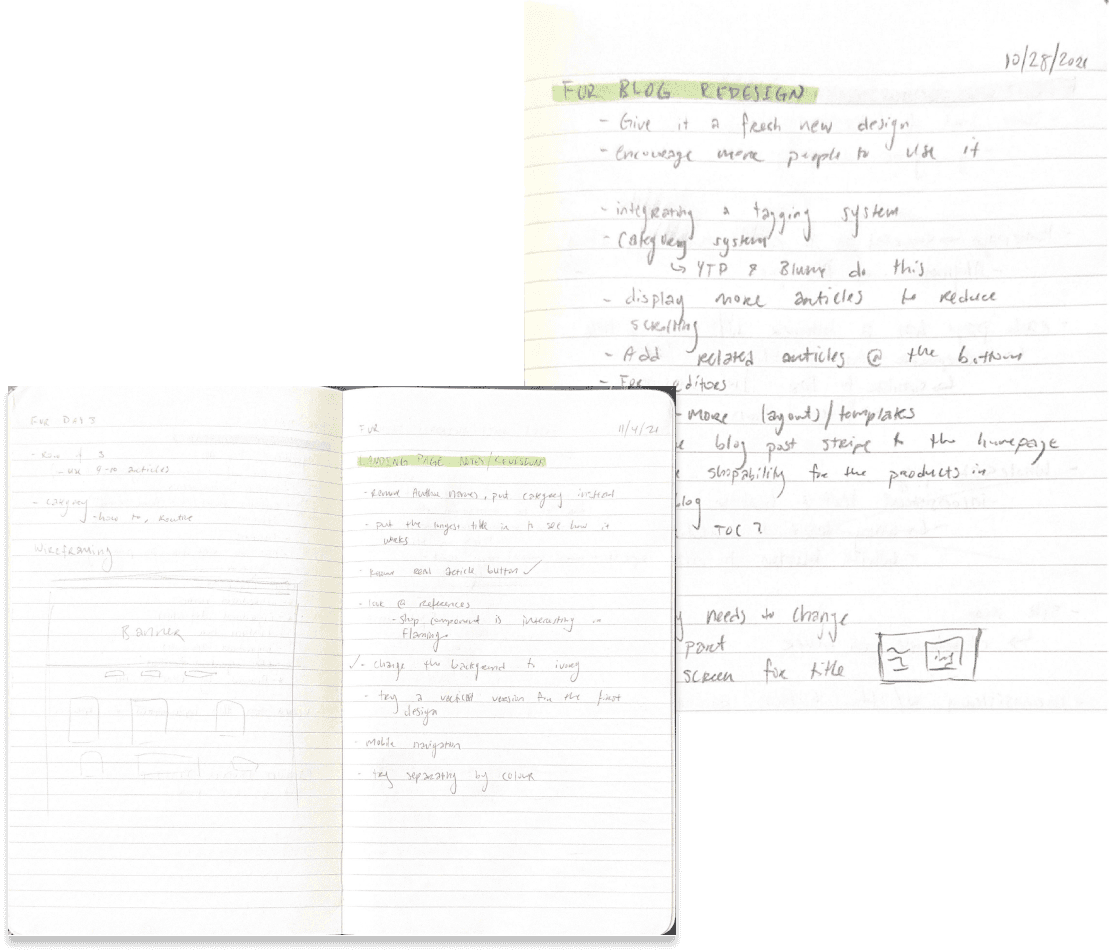 10/28/2021
FUR BLOG REDESIGN
- Give it a fresh new design
- encourage more people to use it
- integrating a tagging system
- category system
↳ YTP & Blume do this
- display more articles to reduce
scrolling
- Add related articles @ the bottom
- For editors
- More layouts/templates
blog post stripe to the homepage
shopability for the products in
blog
TOC ?
needs to change
part
screen for title
img
FUR
- Row of 3
- use 9-10 articles
- category
- how to, routine
wireframing
Banner
FUR
11/4/21
LANDING PAGE NOTES/REVISION
- Remove Author names, put category instead
- put the longest title in to see how it
works
- Remove read article button ✓
- look @ references
- shop component is interesting in
Flamingo
✓ - change the background to ivory
- try a vertical version for the first
design
- mobile navigation
- try separating by colour